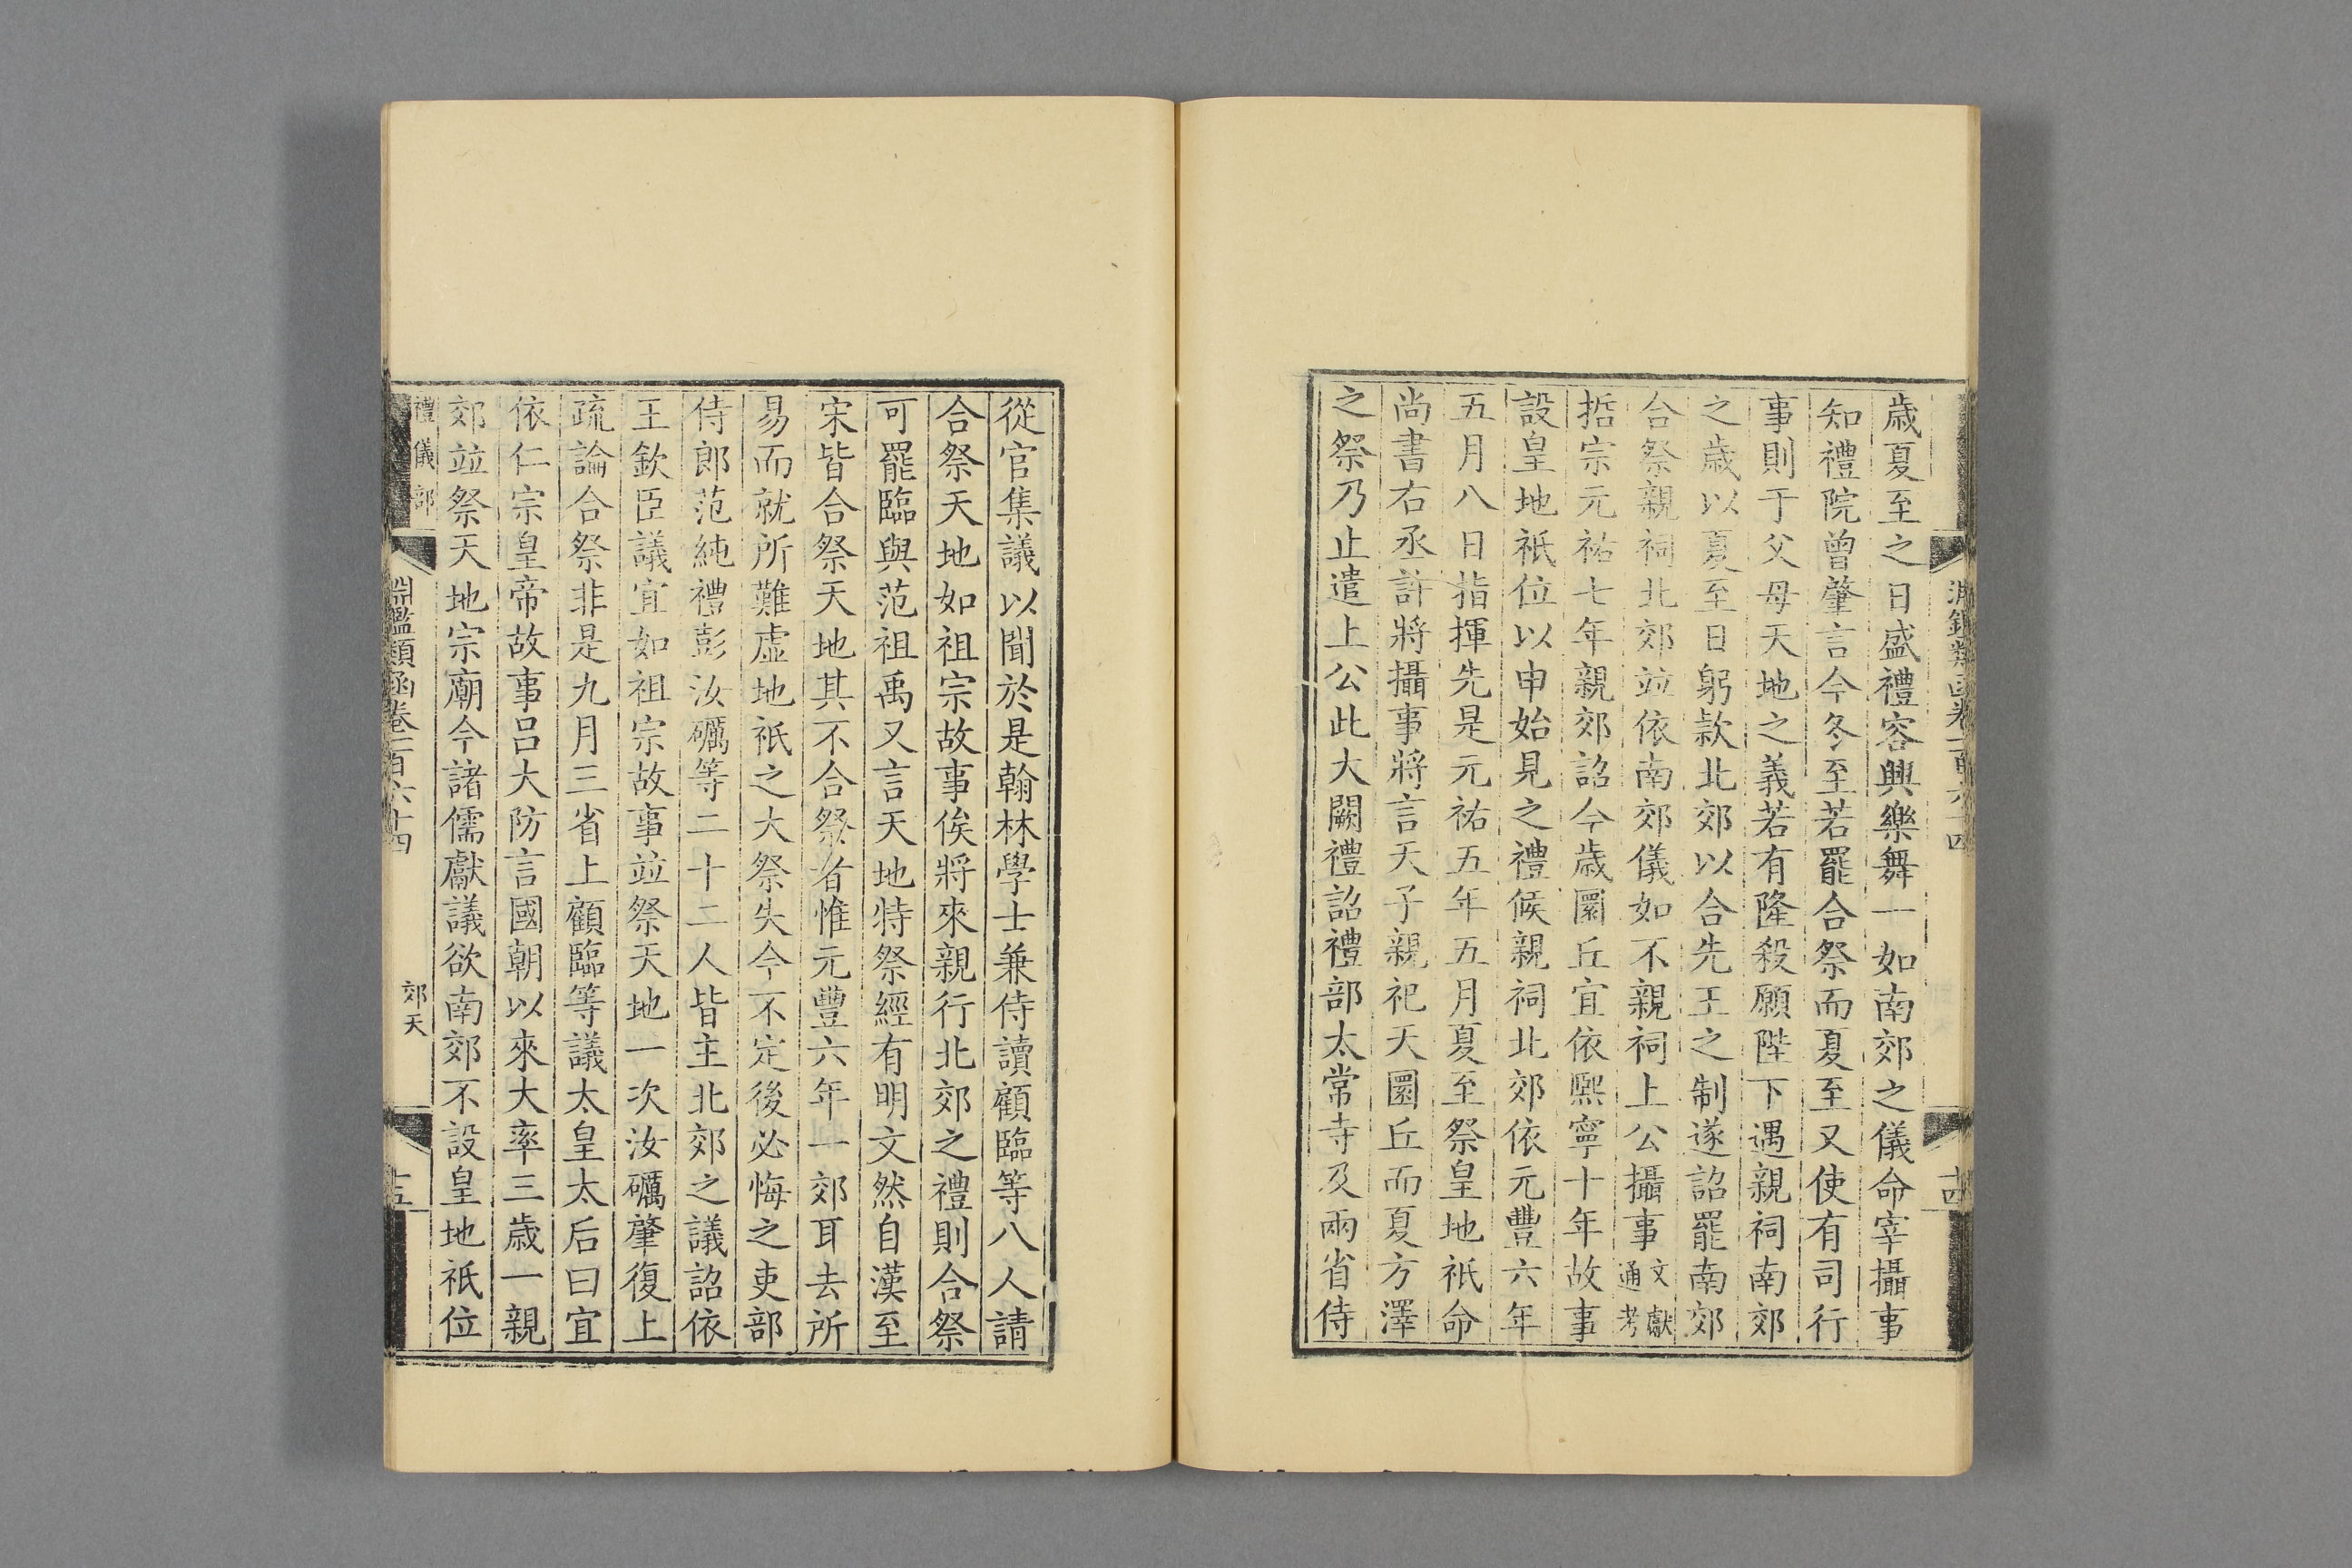 歲夏至之日盛禮容興樂舞一如南郊之儀命宰攝事
知禮院曾肇言今冬至若罷合祭而夏至又使有司行
事則于父母天地之義若有隆殺願陛下遇親祠南郊
之歲以夏至日躬款北郊以合先王之制遂詔罷南郊
合祭親祠北郊竝依南郊儀如不親祠上公攝事文獻通考
哲宗元祐七年親郊詔今歲圜丘宜依熙寧十年故事
設皇地祇位以申始見之禮候親祠北郊依元豐六年
五月八日指揮先是元祐五年五月夏至祭皇地祇命
尚書右丞許將攝事將言天子親祀天圜丘而夏方澤
之祭乃止遣上公此大闕禮詔禮部太常寺及兩省侍
十四
從官集議以聞於是翰林學士兼侍讀顧臨等八人請
合祭天地如祖宗故事俟將來親行北郊之禮則合祭
可罷臨與范祖禹又言天地特祭經有明文然自漢至
宋皆合祭天地其不合祭者惟元豐六年一郊耳去所
易而就所難虛地祇之大祭失今不定後必悔之吏部
侍郎范純禮彭汝礪等二十二人皆主北郊之議詔依
王欽臣議宜如祖宗故事竝祭天地一次汝礪肇復上
疏論合祭非是九月三省上顧臨等議太皇太后曰宜
依仁宗皇帝故事呂大防言國朝以來大率三歲一親
郊竝祭天地宗廟今諸儒獻議欲南郊不設皇地祇位
禮儀部
淵鑑類函卷一百六十四
郊天
十五